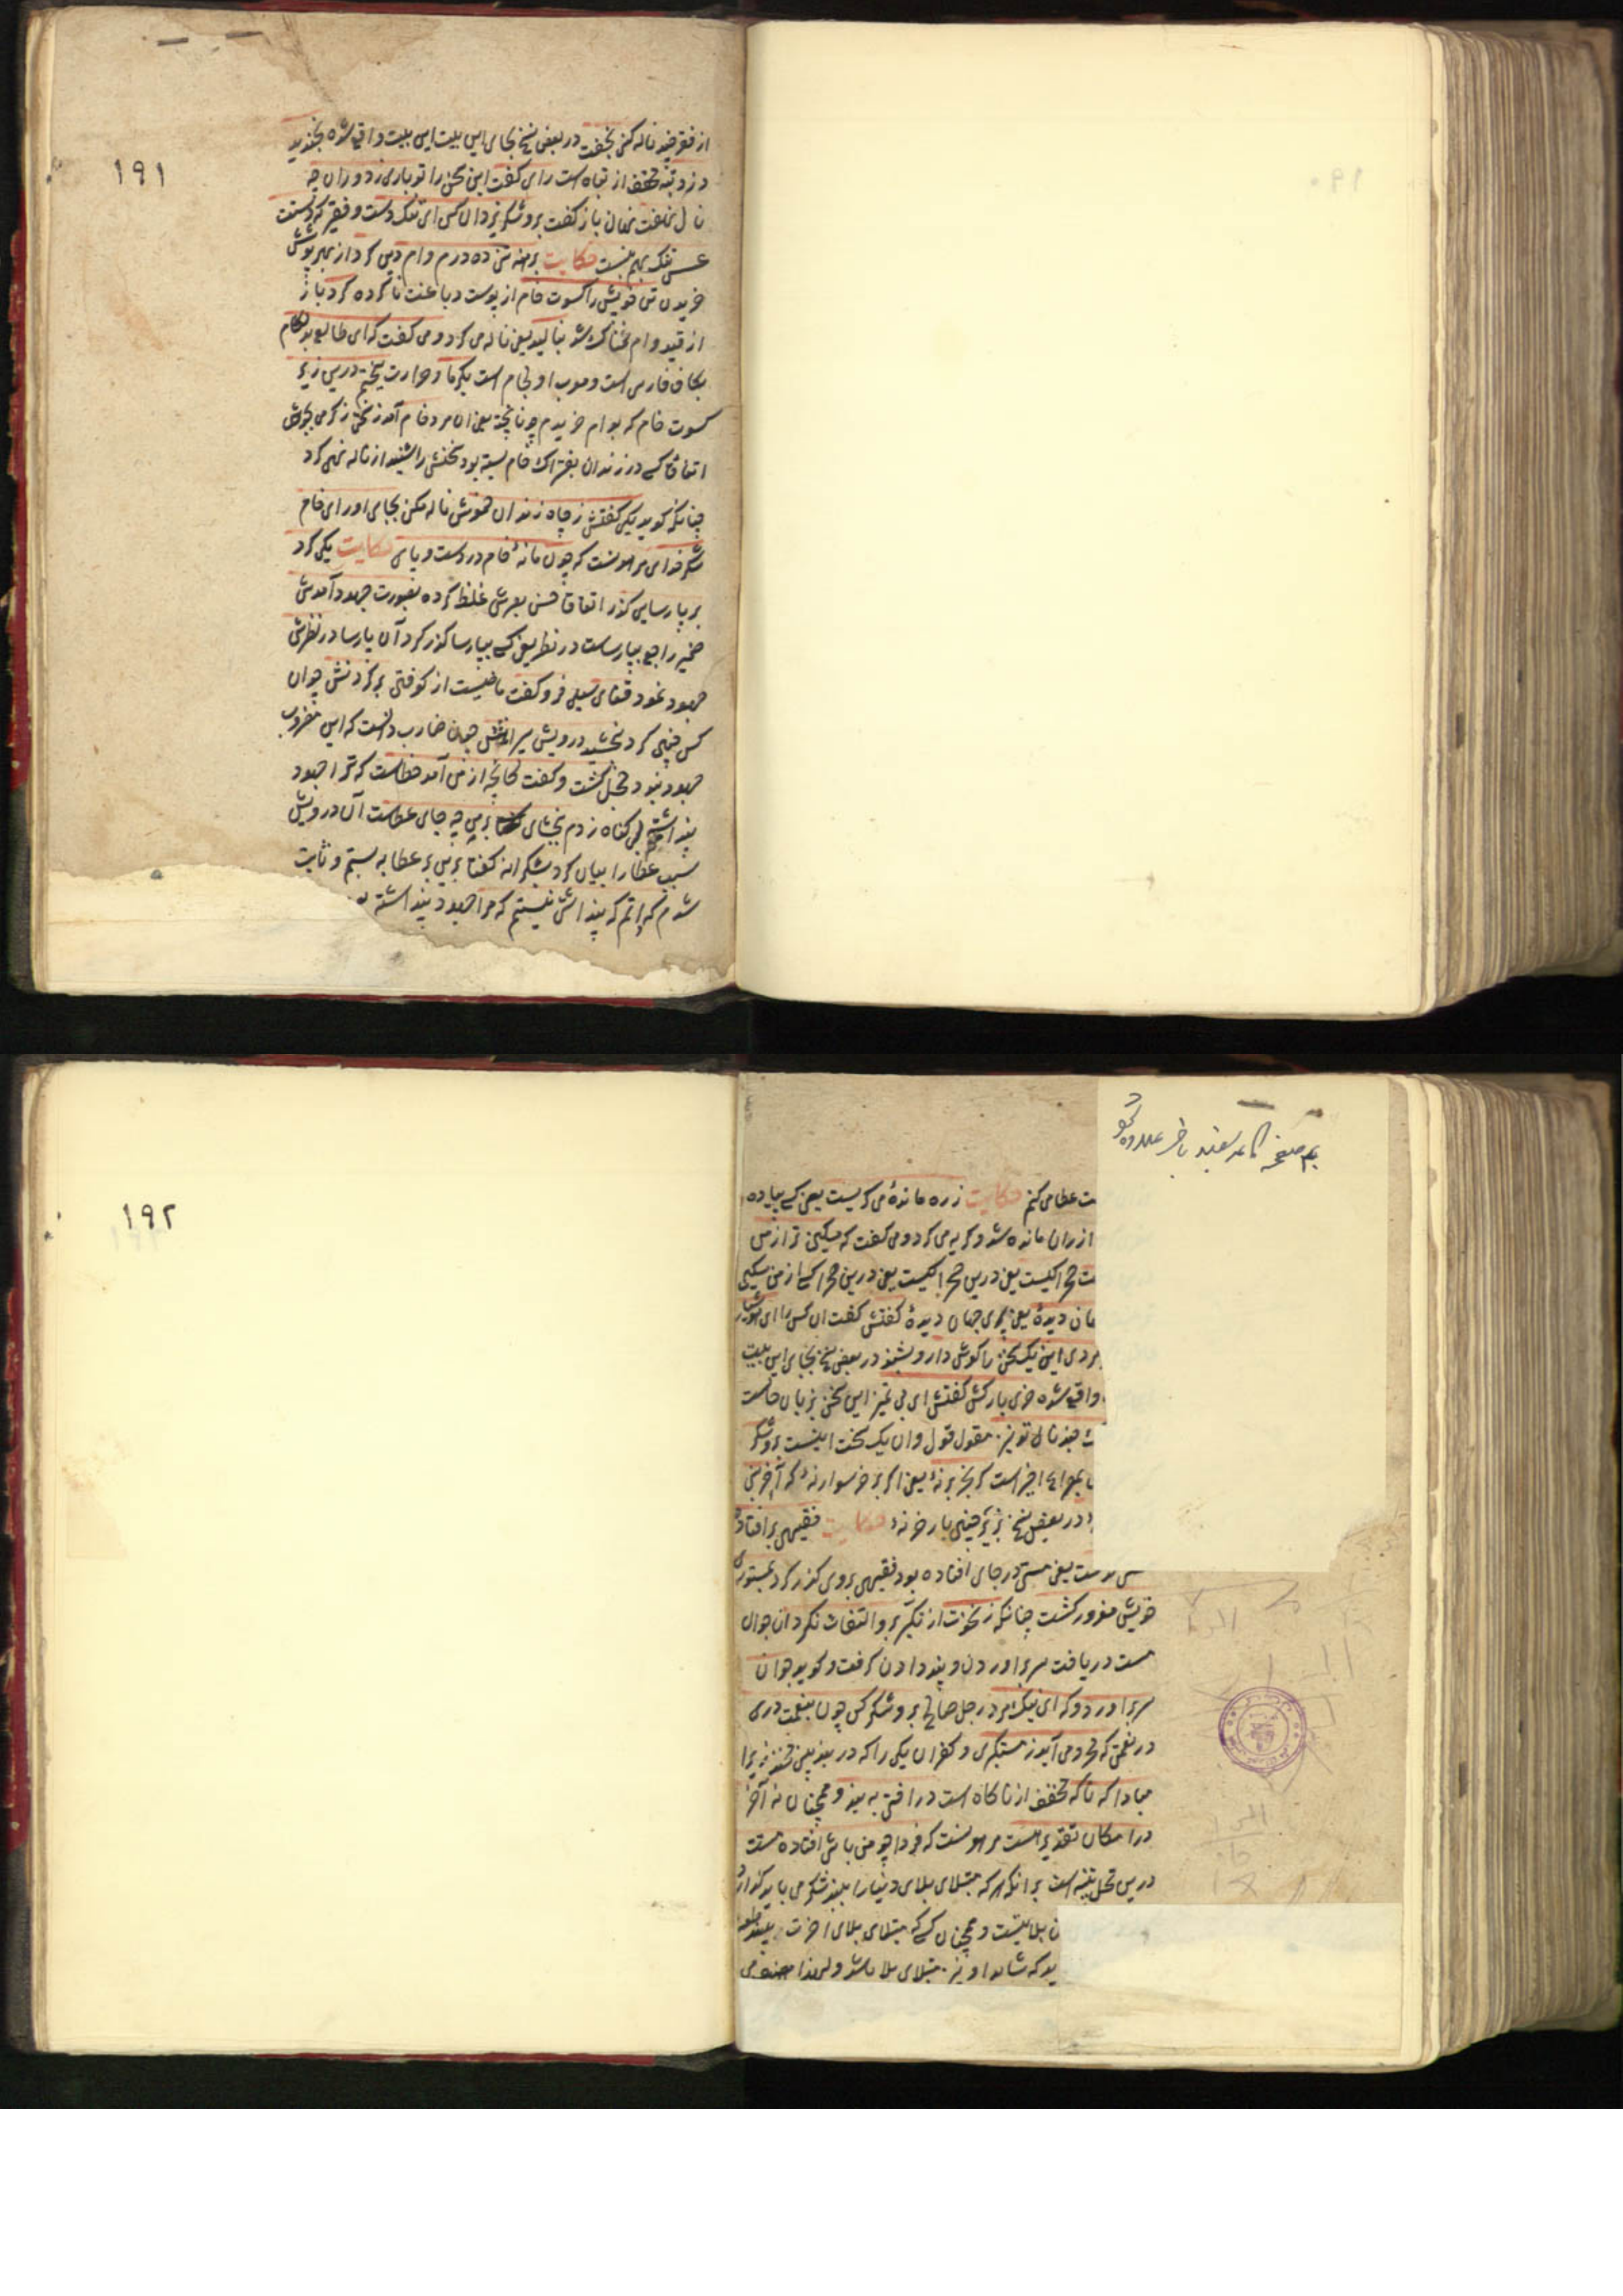 ۱۹۱
از فقر چند ناله کنی بخفت در بعض نسخ بجای این بیت این بیت واقع شده بخندید
دزد تبه مخفف از تباه است رای گفت این سخن را تو باری ز دوران چه
نالی بخفت نالان باز گفت برو شکر یزدان کن ای تنگ دست و فقیر که دستت
عسس تنگ بهم نبست حکایت برهنه تنی ده درم وام دین کرد از بهر پوشش
خریدن تن خویش را کسوت خام از پوست دباغت ناکرده کرد باز
از قید وام غمناک شد بنالید یعنی ناله می کرد و می گفت که ای طالع بدلگام
بکاف فارسی است و معرب او لجام است بگرما و حرارت پختم درین زیر
کسوت خام که بوام خریدم چو ناپخته یعنی ان مرد خام آمد ز سختی ز گرمی بجوش
اتفاقا کسی در زندان بفتراک خام بسته بود سخنش را شنید از ناله نهی کرد
چنانکه گوید یکی گفتش ز چاه زندان خموش ناله مکن بجای اور ای خام
شکر خدای مر هونست که چون ما نهٔ خام در دست و پای حکایت یکی کرد
بر پارسایی گذر اتفاقا حسن بصرش غلط کرده بصورت جهود آمدش
ضمیر راجع بپارساست در نظر یعنی کسی بپارسا گذر کرد آن پارسا در نظرش
جهود نمود قفای سیلی فرو کفت ماضیست از کوفتن بر گردنش چون
کس چنین کرد بخشید درویش پیراهنش چون ضارب دانست که این مضروب
جهود نبود خجل گشت و گفت کانچه از من آمد خطاست که ترا جهود
پنداشتم بی گناه زدم ببخشای بر من چه جای عطاست آن درویش
سبب عطا را بیان کرد بشکرانه گفتا برین بر عطا به بستم و ثابت
شدم که انم که پنداشتی نیستم که مرا جهود پنداشته
۱۹۲
ت عطا می کنم حکایت ز ره ماندهٔ می گریست یعنی کسی پیاده
از ران مانده شد و گریه می کرد و می گفت که مسکین تر از من
ت صحرا کیست یعنی درین صحرا کیست یعنی درین صحرا کسی از من مسکین
جهان دیدهٔ یعنی پیری جهان دیدهٔ گفتش گفت ان کس را ای هوشیار
مردی این یک سخن را گوش دار و بشنو در بعض نسخ بجای این بیت
واقع شده خری بارکش گفتش ای بی تمیز این سخن بزبان حالست
چند نالی تو نیز مقول قول و ان یک سخن اینست برو شکر
است گر بخر بر نهٔ یعنی اگر بر خر سوار نهٔ که آخر بنی
در بعض نسخ بزیر چنین بار خر نهٔ حکایت فقیهی بر افتاده
ست یعنی مستی در جای افتاده بود فقیهی بروی گذر کرد بمستوری
خویش مغرور گشت چنانکه ز نخوت از تکبر برو التفات نکرد ان جوان
مست دریافت سر بر اوردن و پند دادن گرفت و گوید جوان
سر بر اورد و که ای نیک مرد رجل صالح برو شکر کن چون بنعمت دری
در نعمتی که محرومی آید ز مستکبری و کفران یکی را که در بند بینی مخند زیرا
مبادا که ناگه مخفف از ناگاه است در افتی به بند و همچنان نه آخر
در امکان تقدیر هست مر هونست که فردا چو من باشی افتاده مست
درین محل تنبیه است بر انکه هر که مبتلای بلای دنیا را بیند شکر می باید گذارد
ن بلا نیست و همچنان کسی که مبتلای بلای اخرت بیند
ید که شاید او نیز مبتلای بلا باشد و لهذا مصنف می